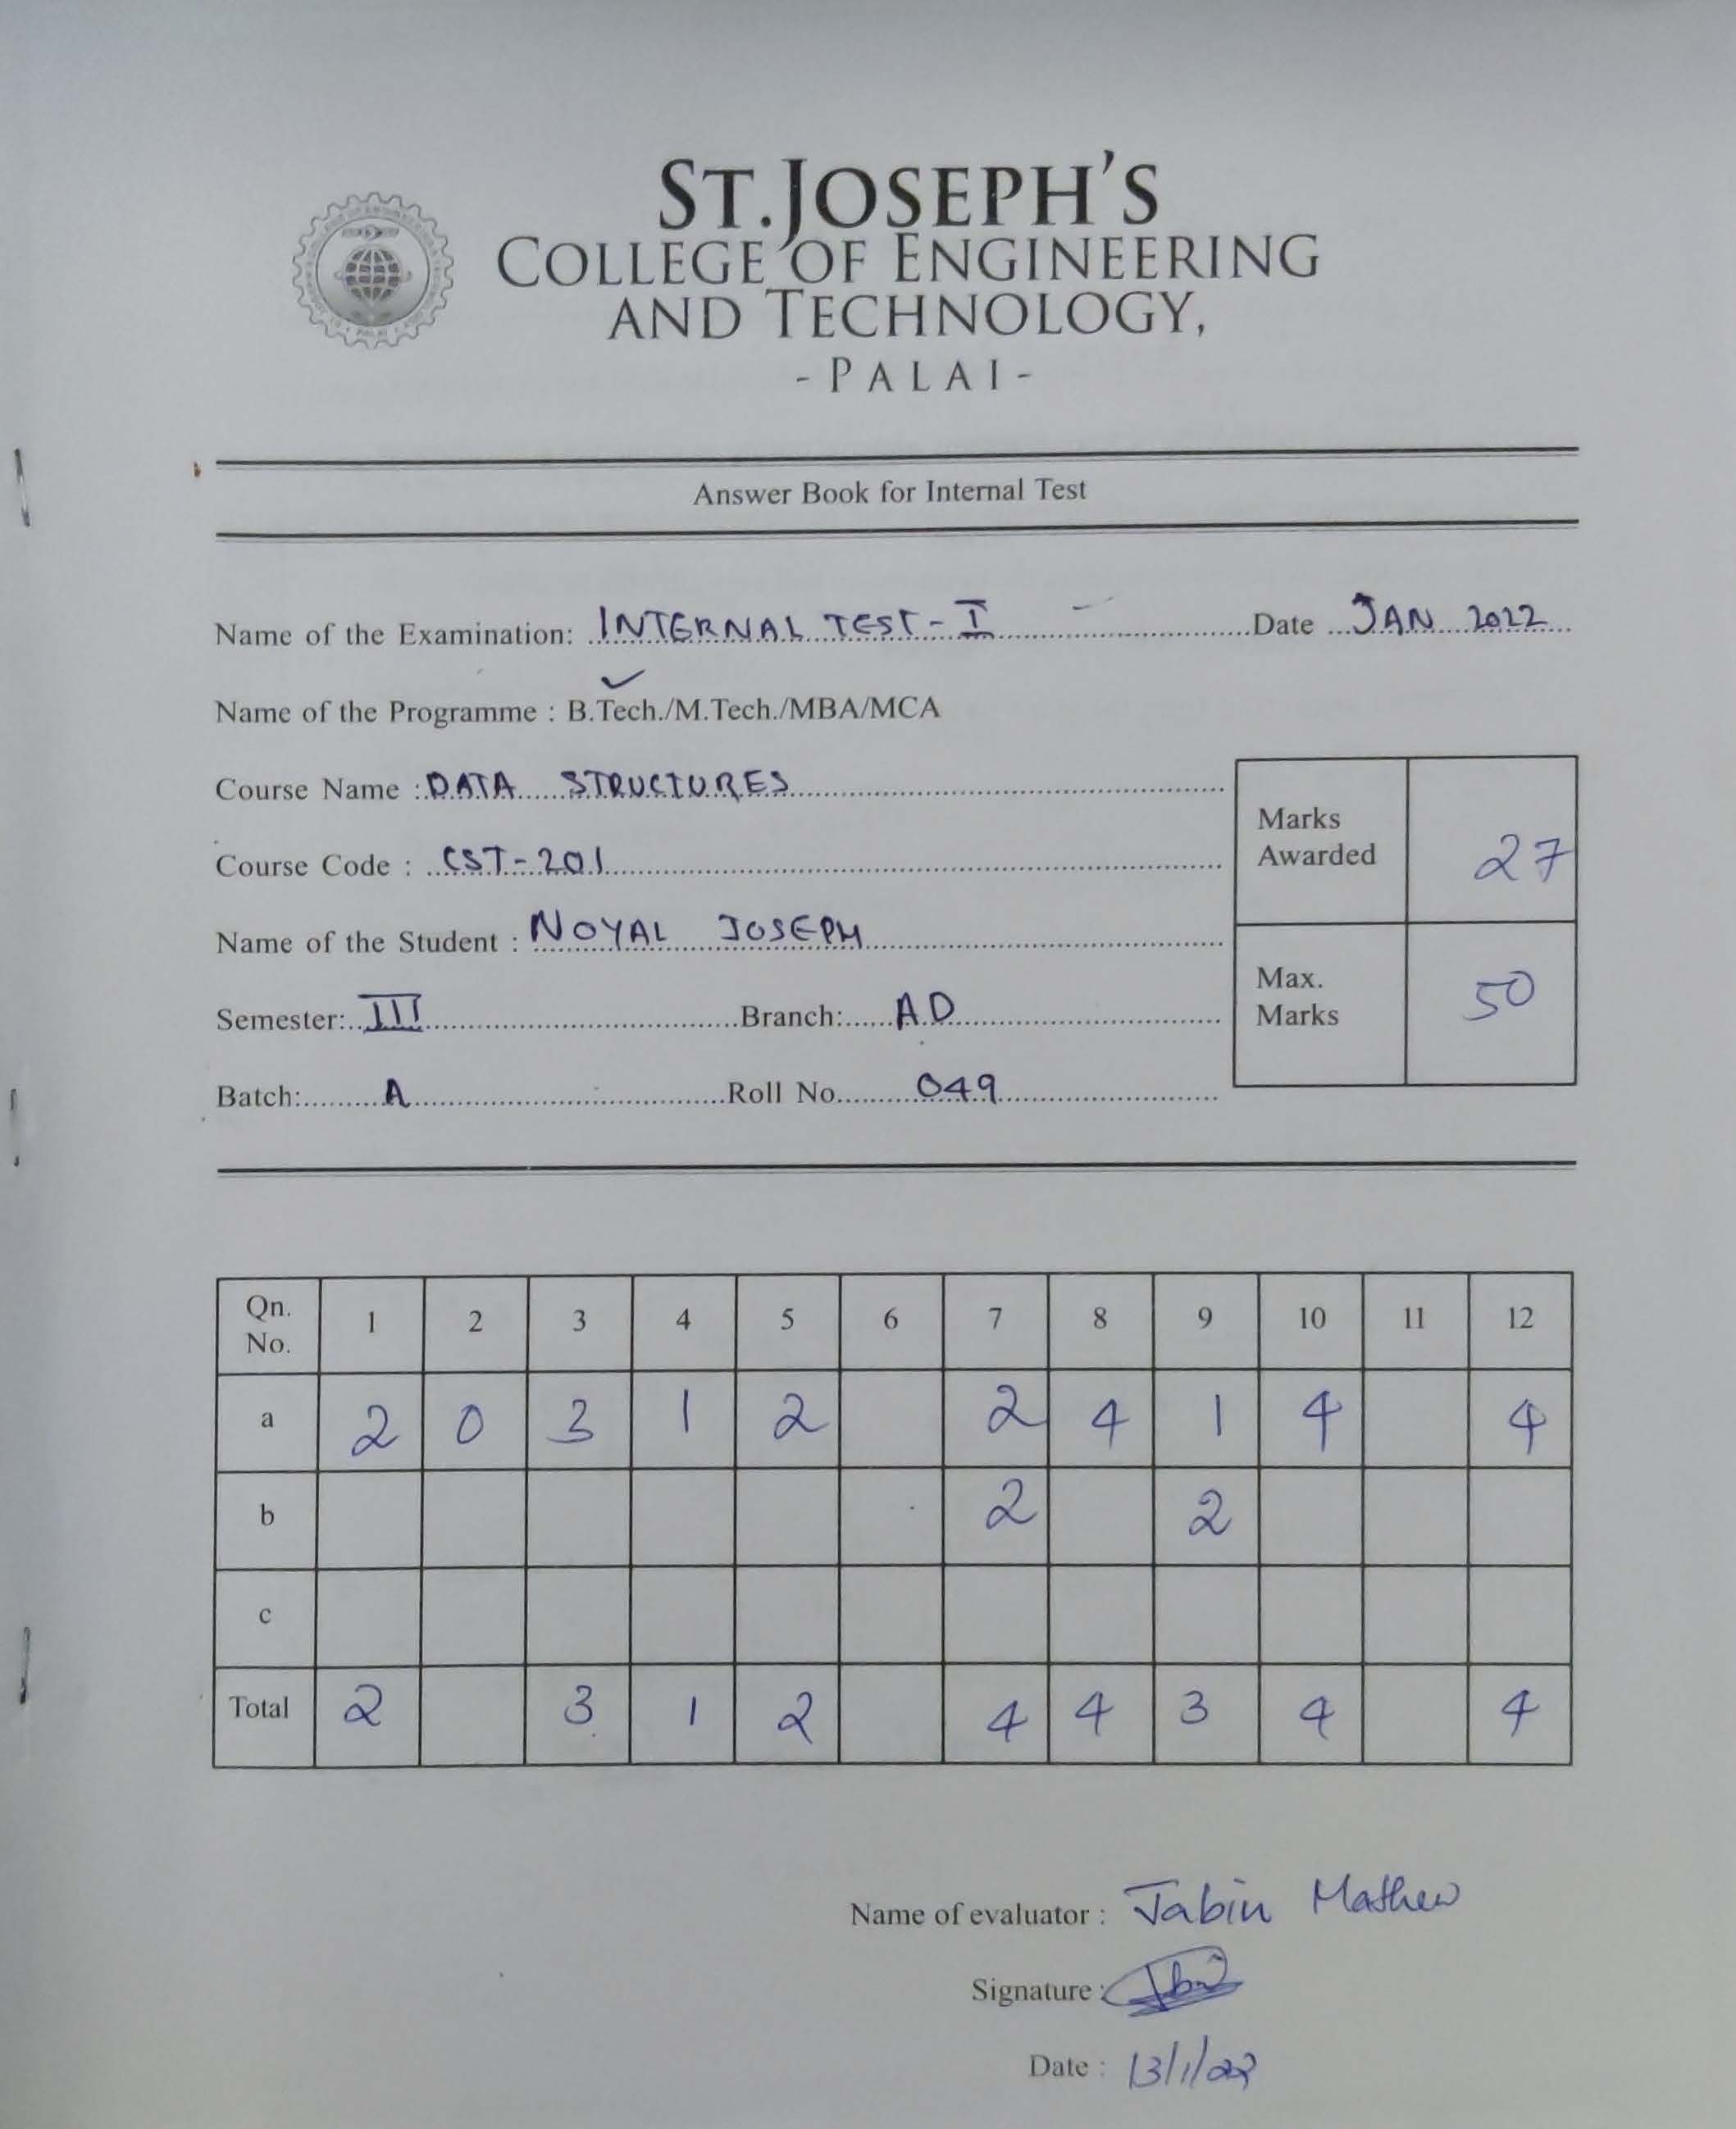 ST.JOSEPH'S
COLLEGE OF ENGINEERING
AND TECHNOLOGY,
- PALAI -
Answer Book for Internal Test
Name of the Examination: INTERNAL TEST - I Date JAN 2022
Name of the Programme : B.Tech./M.Tech./MBA/MCA
Course Name : DATA STRUCTURES
Course Code : CST-201
Name of the Student : NOYAL JOSEPH
Semester: III Branch: AD
Batch: A Roll No. 049
Marks Awarded 27
Max. Marks 50
Qn. No. 1 2 3 4 5 6 7 8 9 10 11 12
a 2 0 3 1 2 2 4 1 4 4
b 2 2
c
Total 2 3 1 2 4 4 3 4 4
Name of evaluator : Jabin Mathew
Signature :
Date : 13/1/22